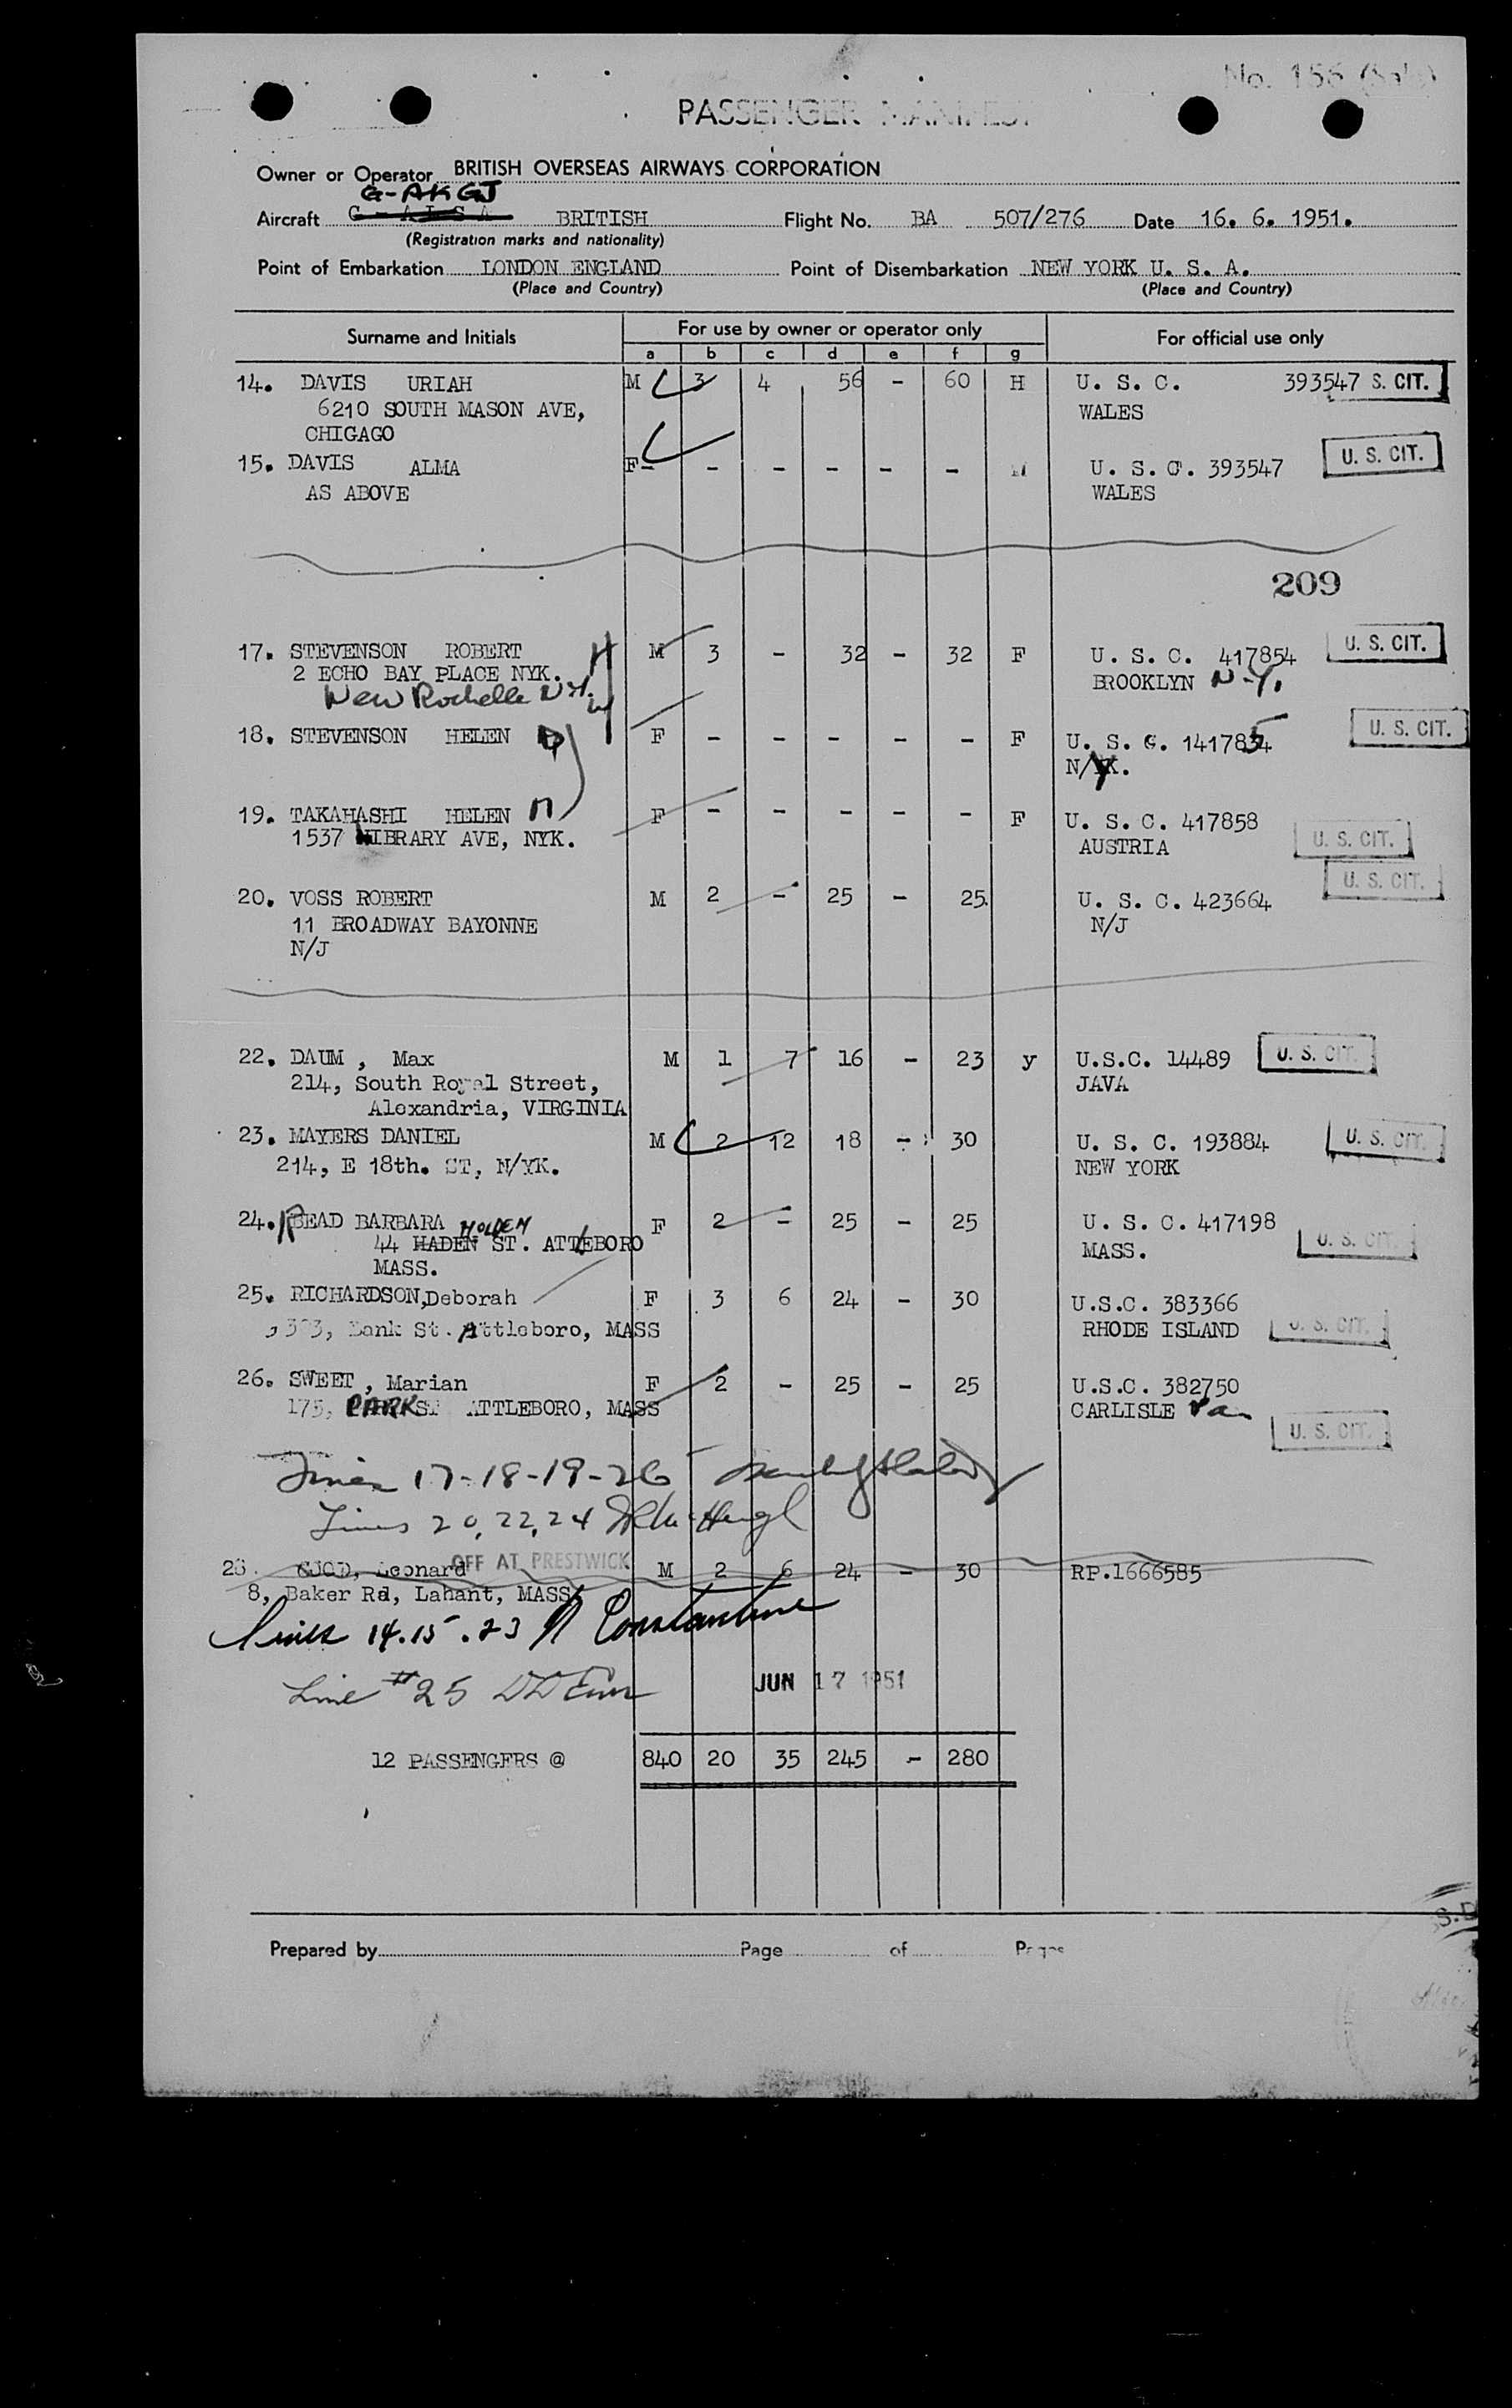 No. 156
PASSENGER MANIFEST
Owner or Operator BRITISH OVERSEAS AIRWAYS CORPORATION
G-AKGJ
Aircraft G - A L S A BRITISH Flight No. BA 507/276 Date 16. 6. 1951.
(Registration marks and nationality)
Point of Embarkation LONDON ENGLAND Point of Disembarkation NEW YORK U. S. A.
(Place and Country) (Place and Country)
Surname and Initials For use by owner or operator only For official use only
a b c d e f g
14. DAVIS URIAH M 3 4 56 - 60 H U. S. C. 393547 S. CIT.
6210 SOUTH MASON AVE, WALES
CHIGAGO
15. DAVIS ALMA F- - - - - - M U. S. C. 393547 U. S. CIT.
AS ABOVE WALES
209
17. STEVENSON ROBERT M 3 - 32 - 32 F U. S. C. 417854 U. S. CIT.
2 ECHO BAY PLACE NYK. BROOKLYN N-Y.
New Rochelle N.Y.
18. STEVENSON HELEN F - - - - - F U. S. C. 1417854 U. S. CIT.
N/YK.
19. TAKAHASHI HELEN F - - - - - F U. S. C. 417858
1537 HIBRARY AVE, NYK. AUSTRIA U. S. CIT.
20. VOSS ROBERT M 2 - 25 - 25. U. S. C. 423664 U. S. CIT.
11 BROADWAY BAYONNE N/J
N/J
22. DAUM , Max M 1 7 16 - 23 y U.S.C. 14489 U. S. CIT.
214, South Royal Street, JAVA
Alexandria, VIRGINIA
23. MAYERS DANIEL M 2 12 18 - 30 U. S. C. 193884 U. S. CIT.
214, E 18th. ST, N/YK. NEW YORK
24. READ BARBARA F 2 - 25 - 25 U. S. C. 417198
HOLDEN
44 HADEN ST. ATTLEBORO MASS. U. S. CIT.
MASS.
25. RICHARDSON,Deborah F 3 6 24 - 30 U.S.C. 383366
Bank St. Attleboro, MASS RHODE ISLAND U. S. CIT.
26. SWEET , Marian F 2 - 25 - 25 U.S.C. 382750
175, PARK ST ATTLEBORO, MASS CARLISLE Pa
U. S. CIT.
Lines 17-18-19-26
Lines 20, 22, 24
28. GOOD, Leonard OFF AT PRESTWICK M 2 6 24 - 30 RP.1666585
8, Baker Rd, Lahant, MASS
Lines 14.15.23 N Constantine
Line #25
JUN 17 1951
12 PASSENGERS @ 840 20 35 245 - 280
Prepared by Page of Pages